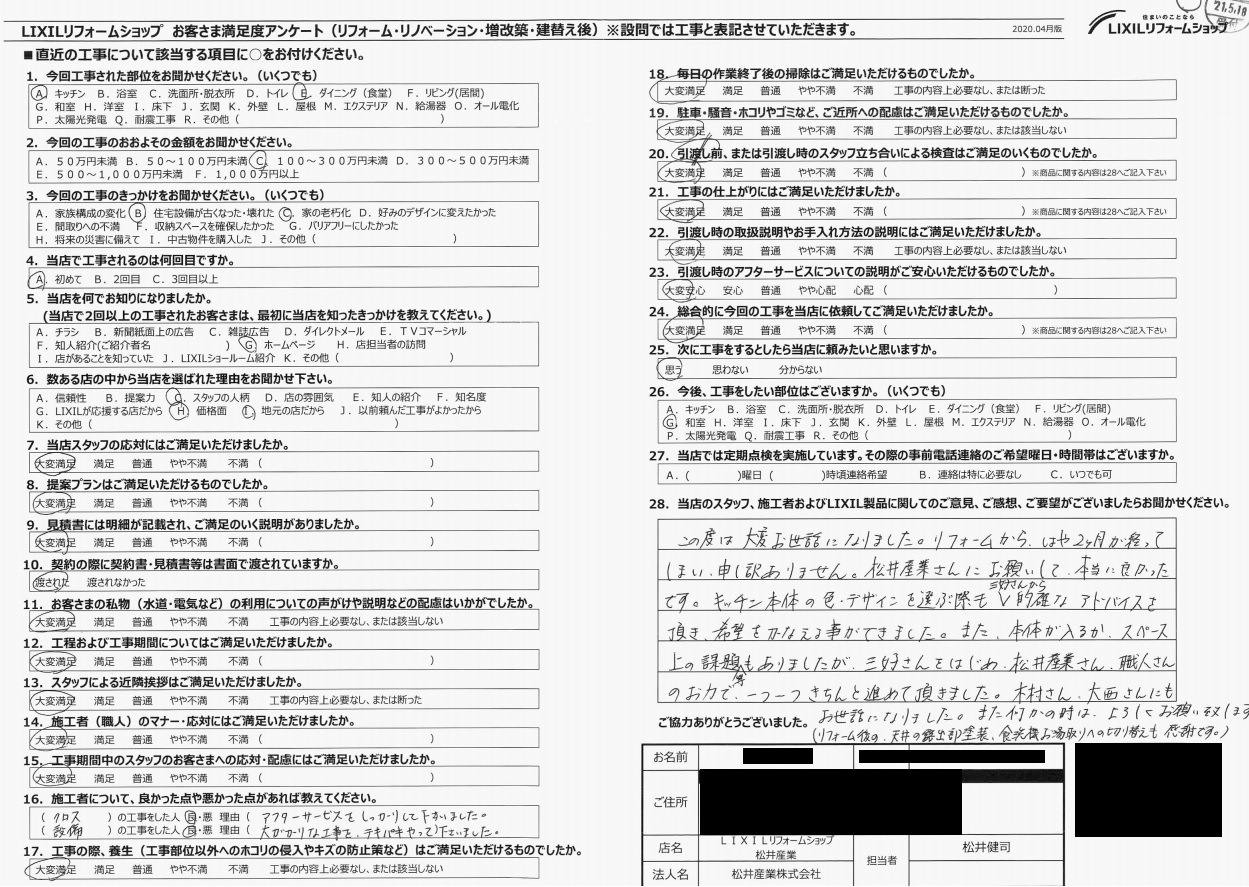 LIXILリフォームショップ お客さま満足度アンケート（リフォーム・リノベーション・増改築・建替え後）※設問では工事と表記させていただきます。
2020.04月版
住まいのことなら
LIXILリフォームショップ
'21.5.18
■直近の工事について該当する項目に○をお付けください。
1．今回工事された部位をお聞かせください。（いくつでも）
A．キッチン B．浴室 C．洗面所・脱衣所 D．トイレ E．ダイニング（食堂） F．リビング(居間)
G．和室 H．洋室 I．床下 J．玄関 K．外壁 L．屋根 M．エクステリア N．給湯器 O．オール電化
P．太陽光発電 Q．耐震工事 R．その他（ ）
2．今回の工事のおおよその金額をお聞かせください。
A．50万円未満 B．50～100万円未満 C．100～300万円未満 D．300～500万円未満
E．500～1,000万円未満 F．1,000万円以上
3．今回の工事のきっかけをお聞かせください。（いくつでも）
A．家族構成の変化 B．住宅設備が古くなった・壊れた C．家の老朽化 D．好みのデザインに変えたかった
E．間取りへの不満 F．収納スペースを確保したかった G．バリアフリーにしたかった
H．将来の災害に備えて I．中古物件を購入した J．その他（ ）
4．当店で工事されるのは何回目ですか。
A．初めて B．2回目 C．3回目以上
5．当店を何でお知りになりましたか。
(当店で2回以上の工事されたお客さまは、最初に当店を知ったきっかけを教えてください。)
A．チラシ B．新聞紙面上の広告 C．雑誌広告 D．ダイレクトメール E．TVコマーシャル
F．知人紹介(ご紹介者名 ) G．ホームページ H．店担当者の訪問
I．店があることを知っていた J．LIXILショールーム紹介 K．その他（ ）
6．数ある店の中から当店を選ばれた理由をお聞かせ下さい。
A．信頼性 B．提案力 C．スタッフの人柄 D．店の雰囲気 E．知人の紹介 F．知名度
G．LIXILが応援する店だから H．価格面 I．地元の店だから J．以前頼んだ工事がよかったから
K．その他（ ）
7．当店スタッフの応対にはご満足いただけましたか。
大変満足 満足 普通 やや不満 不満（ ）
8．提案プランはご満足いただけるものでしたか。
大変満足 満足 普通 やや不満 不満（ ）
9．見積書には明細が記載され、ご満足のいく説明がありましたか。
大変満足 満足 普通 やや不満 不満（ ）
10．契約の際に契約書・見積書等は書面で渡されていますか。
渡された 渡されなかった
11．お客さまの私物（水道・電気など）の利用についての声がけや説明などの配慮はいかがでしたか。
大変満足 満足 普通 やや不満 不満 工事の内容上必要なし、または該当しない
12．工程および工事期間についてはご満足いただけましたか。
大変満足 満足 普通 やや不満 不満（ ）
13．スタッフによる近隣挨拶はご満足いただけましたか。
大変満足 満足 普通 やや不満 不満 工事の内容上必要なし、または断った
14．施工者（職人）のマナー・応対にはご満足いただけましたか。
大変満足 満足 普通 やや不満 不満（ ）
15．工事期間中のスタッフのお客さまへの応対・配慮にはご満足いただけましたか。
大変満足 満足 普通 やや不満 不満（ ）
16．施工者について、良かった点や悪かった点があれば教えてください。
（ クロス ）の工事をした人 良・悪 理由（ アフターサービスをしっかりして下さいました。
（ 設備 ）の工事をした人 良・悪 理由（ 大がかりな工事を、テキパキやって下さいました。
17．工事の際、養生（工事部位以外へのホコリの侵入やキズの防止策など）はご満足いただけるものでしたか。
大変満足 満足 普通 やや不満 不満 工事の内容上必要なし、または該当しない
18．毎日の作業終了後の掃除はご満足いただけるものでしたか。
大変満足 満足 普通 やや不満 不満 工事の内容上必要なし、または断った
19．駐車・騒音・ホコリやゴミなど、ご近所への配慮はご満足いただけるものでしたか。
大変満足 満足 普通 やや不満 不満 工事の内容上必要なし、または該当しない
20．引渡し前、または引渡し時のスタッフ立ち合いによる検査はご満足のいくものでしたか。
大変満足 満足 普通 やや不満 不満（ ）※商品に関する内容は28へご記入下さい
21．工事の仕上がりにはご満足いただけましたか。
大変満足 満足 普通 やや不満 不満（ ）※商品に関する内容は28へご記入下さい
22．引渡し時の取扱説明やお手入れ方法の説明にはご満足いただけましたか。
大変満足 満足 普通 やや不満 不満 工事の内容上必要なし、または該当しない
23．引渡し時のアフターサービスについての説明がご安心いただけるものでしたか。
大変安心 安心 普通 やや心配 心配（ ）
24．総合的に今回の工事を当店に依頼してご満足いただけましたか。
大変満足 満足 普通 やや不満 不満（ ）※商品に関する内容は28へご記入下さい
25．次に工事をするとしたら当店に頼みたいと思いますか。
思う 思わない 分からない
26．今後、工事をしたい部位はございますか。（いくつでも）
A．キッチン B．浴室 C．洗面所・脱衣所 D．トイレ E．ダイニング（食堂） F．リビング(居間)
G．和室 H．洋室 I．床下 J．玄関 K．外壁 L．屋根 M．エクステリア N．給湯器 O．オール電化
P．太陽光発電 Q．耐震工事 R．その他（ ）
27．当店では定期点検を実施しています。その際の事前電話連絡のご希望曜日・時間帯はございますか。
A．( )曜日（ ）時頃連絡希望 B．連絡は特に必要なし C．いつでも可
28．当店のスタッフ、施工者およびLIXIL製品に関してのご意見、ご感想、ご要望がございましたらお聞かせください。
この度は大変お世話になりました。リフォームから、はや2ヶ月が経って
しまい、申し訳ありません。松井産業さんにお願いして、本当に良かった
です。キッチン本体の色・デザインを選ぶ際も三好さんから的確なアドバイスを
頂き、希望をかなえる事ができました。また、本体が入るか、スペース
上の課題等もありましたが、三好さんをはじめ、松井産業さん、職人さん
のお力で、一つ一つきちんと進めて頂きました。木村さん、大西さんにも
お世話になりました。また何かの時は、よろしくお願い致します
(リフォーム後の、天井の露出部塗装、食洗機お湯取りへの切り替えも感謝です。)
ご協力ありがとうございました。
お名前
ご住所
店名 LIXILリフォームショップ 松井産業 担当者 松井健司
法人名 松井産業株式会社